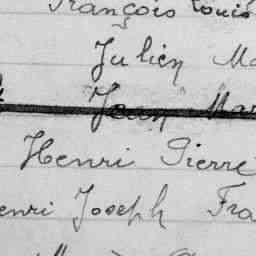 François Louis
Julien Ma
Jean Mar
Henri Pierre
enri Joseph Fra